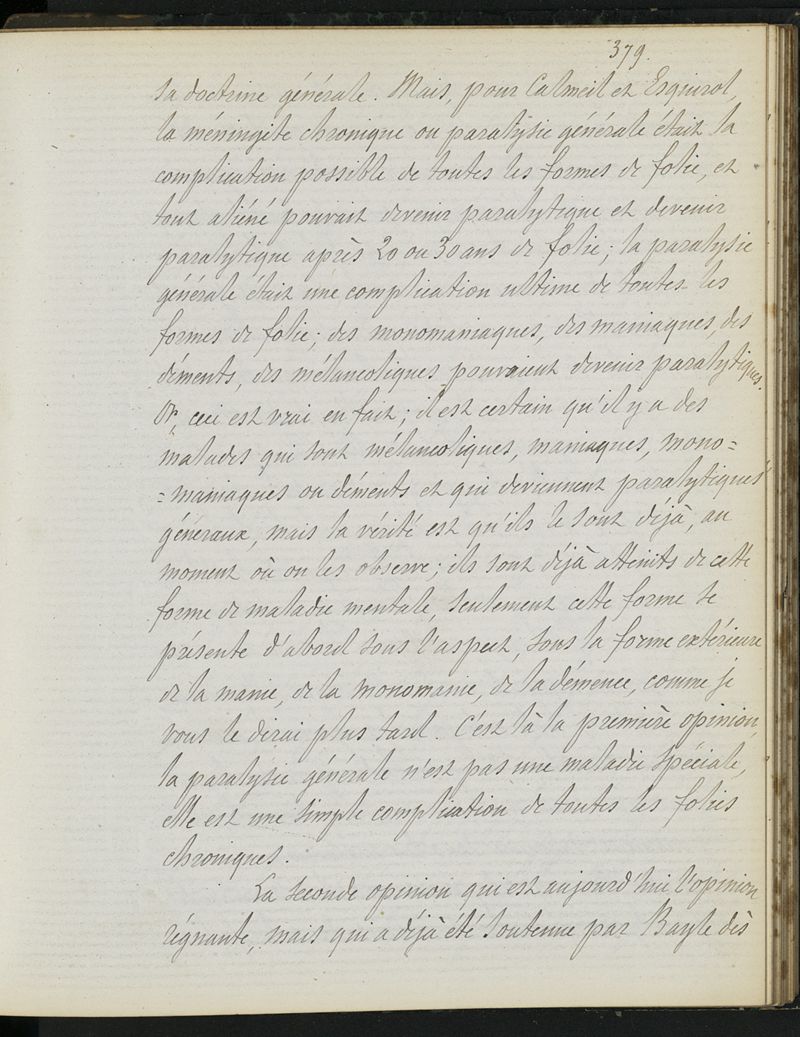 379.
sa doctrine générale. Mais, pour Calmeil et Esquirol,
la méningite chronique ou paralysie générale était la
complication possible de toutes les formes de folie, et
tout aliéné pouvait devenir paralytique et devenir
paralytique après 20 ou 30 ans de folie; la paralysie
générale était une complication ultime de toutes les
formes de folie; des monomaniaques, des maniaques, des
déments, des mélancoliques pouvaient devenir paralytiques.
Or, ceci est vrai en fait; il est certain qu'il y a des
malades qui sont mélancoliques, maniaques, mono=
=maniaques ou déments et qui deviennent paralytiques
généraux, mais la vérité est qu'ils le sont déjà, au
moment où on les observe; ils sont déjà atteints de cette
forme de maladie mentale, seulement cette forme se
présente d'abord sous l'aspect, sous la forme extérieure
de la manie, de la monomanie, de la démence, comme je
vous le dirai plus tard. C'est là la première opinion,
la paralysie générale n'est pas une maladie spéciale,
elle est une simple complication de toutes les folies
chroniques.
La seconde opinion qui est aujourd'hui l'opinion
régnante, mais qui a déjà été soutenue par Bayle dès